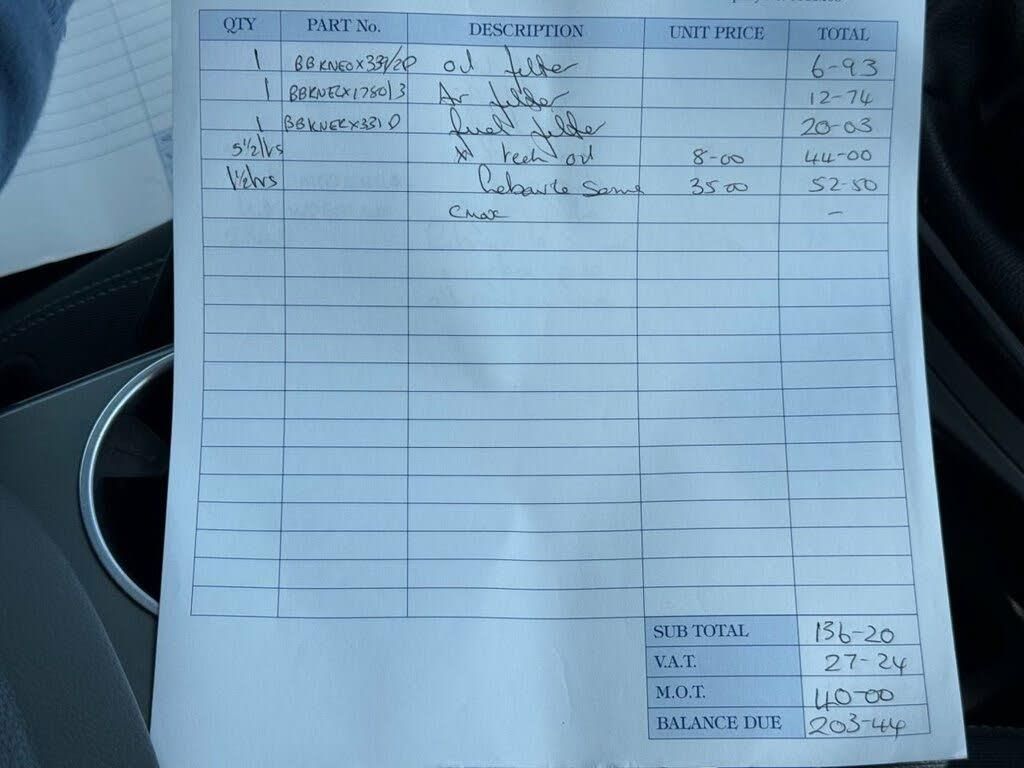 QTY PART No. DESCRIPTION UNIT PRICE TOTAL
1 oil filter 6-93
1 Air filter 12-74
1 fuel filter 20-03
5½ltrs tech oil 8-00 44-00
1½hrs 35 00 52-50
cmax –
SUB TOTAL 136-20
V.A.T. 27-24
M.O.T. 40-00
BALANCE DUE 203-44